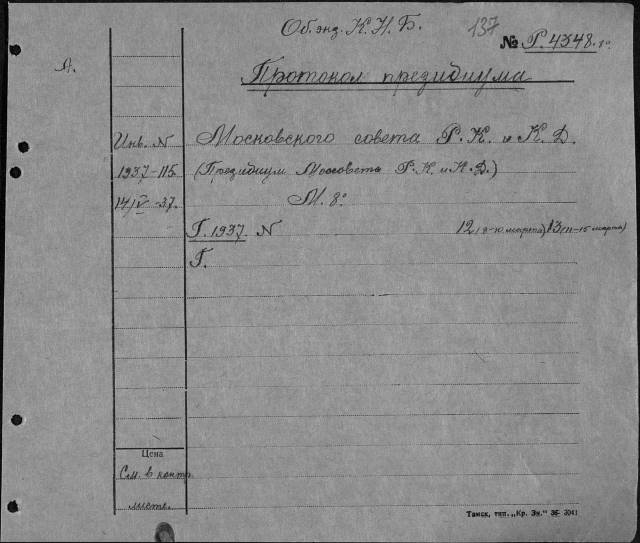 Об. экз. К. Н. Б.
137
№ Р.4348.8°
А.
Протокол президиума
Инв. N
Московского совета Р. К. и К. Д.
1937-115
(Президиум Моссовета Р. К и К. Д.)
14/IV-37.
М. 8°
Г. 1937. N 12 (9-10 марта) 13 (11-15 марта)
Г.
Цена
См. в контр.
листе.
Томск, тип. „Кр. Зн." ЗБ 3041